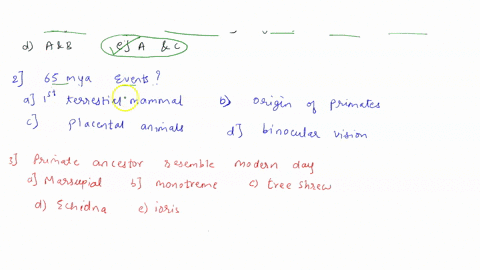 d) A&B e) A & C
2] 65 mya Events?
a] 1st terrestial mammal b) origin of primates
c] placental animals d] binocular vision
3] Primate ancestor resemble modern day
a] Marsupial b] monotreme c) tree shrew
d) Echidna e) ioris